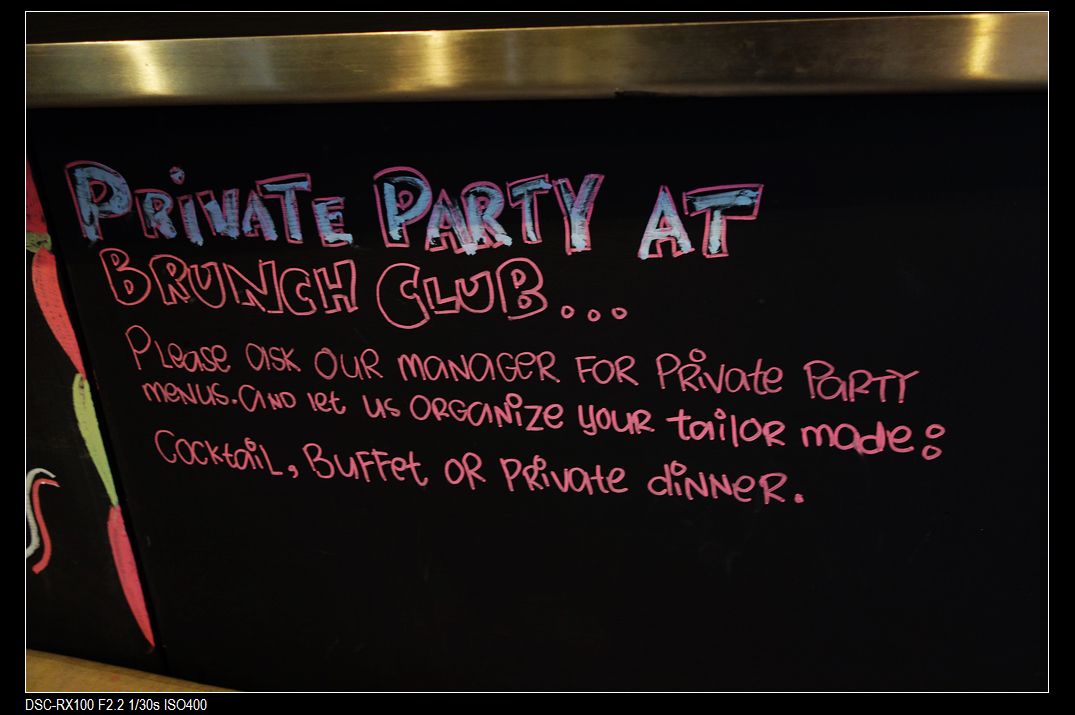 PRiVATE PARTY AT
BRUNCH CLUB...
Please ask our manager for private party
menus. and let us organize your tailor made:
Cocktail, Buffet or private dinner.
DSC-RX100 F2.2 1/30s ISO400